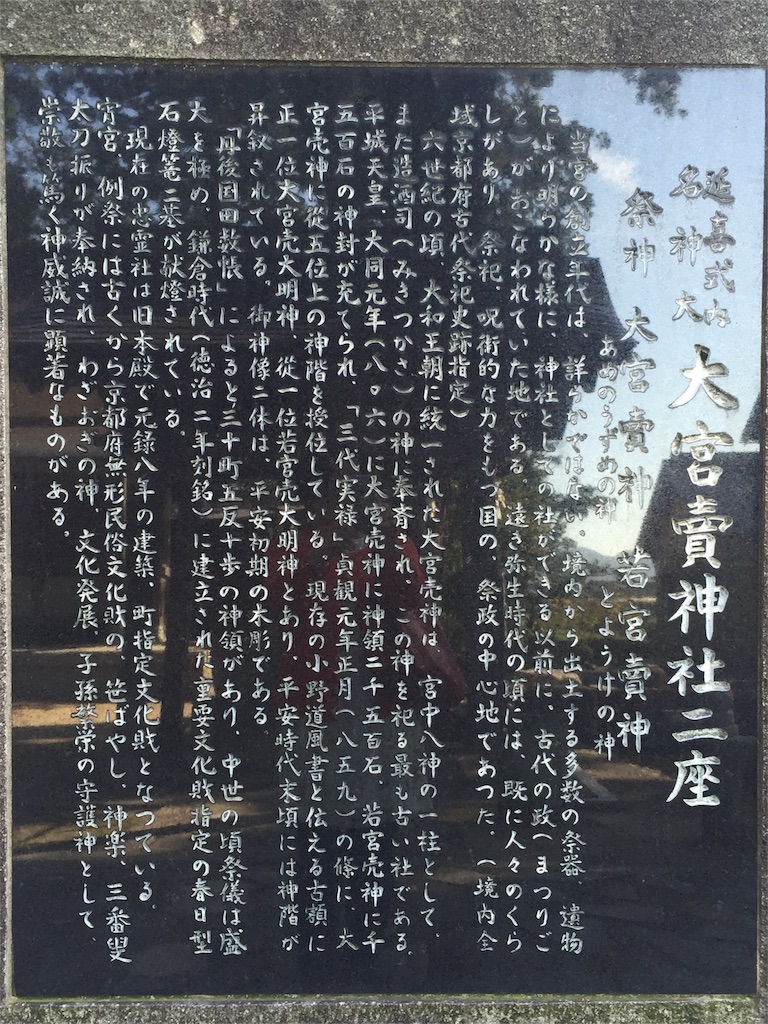 延喜式内
名神大
大宮賣神社二座
祭神 大宮賣神 若宮賣神
あめのうずめの神 とようけの神
当宮の創立年代は、詳らかではない。境内から出土する多数の祭器、遺物
により明らかな様に、神社としての社ができる以前に、古代の政(まつりご
と)がおこなわれていた地である。遠き弥生時代の頃には、既に人々のくら
しがあり、祭祀、呪術的な力をもつ国の、祭政の中心地であつた。(境内全
域京都府古代祭祀史跡指定)
六世紀の頃、大和王朝に統一された大宮売神は、宮中八神の一柱として、
また造酒司(みきつかさ)の神に奉斉され、この神を祀る最も古い社である。
平城天皇、大同元年(八〇六)に大宮売神に神領二千五百石、若宮売神に千
五百石の神封が充てられ、「三代実禄」貞観元年正月(八五九)の條に、大
宮売神に從五位上の神階を授位している。現存の小野道風書と伝える古額に
正一位大宮売大明神 從一位若宮売大明神とあり、平安時代末頃には神階が
昇叙されている 御神像二体は、平安初期の木彫である
「丹後国田数帳」によると三十町五反十歩の神領があり、中世の頃祭儀は盛
大を極め、鎌倉時代(徳治二年刻銘)に建立された重要文化財指定の春日型
石燈篭二基が献燈されている。
現在の忠霊社は旧本殿で元録八年の建築、町指定文化財となつている。
宵宮、例祭には古くから京都府無形民俗文化財の、笹ばやし、神楽、三番叟
大刀振りが奉納され、わざおぎの神、文化発展、子孫繁栄の守護神として、
崇敬も篤く神威誠に顕著なものがある。